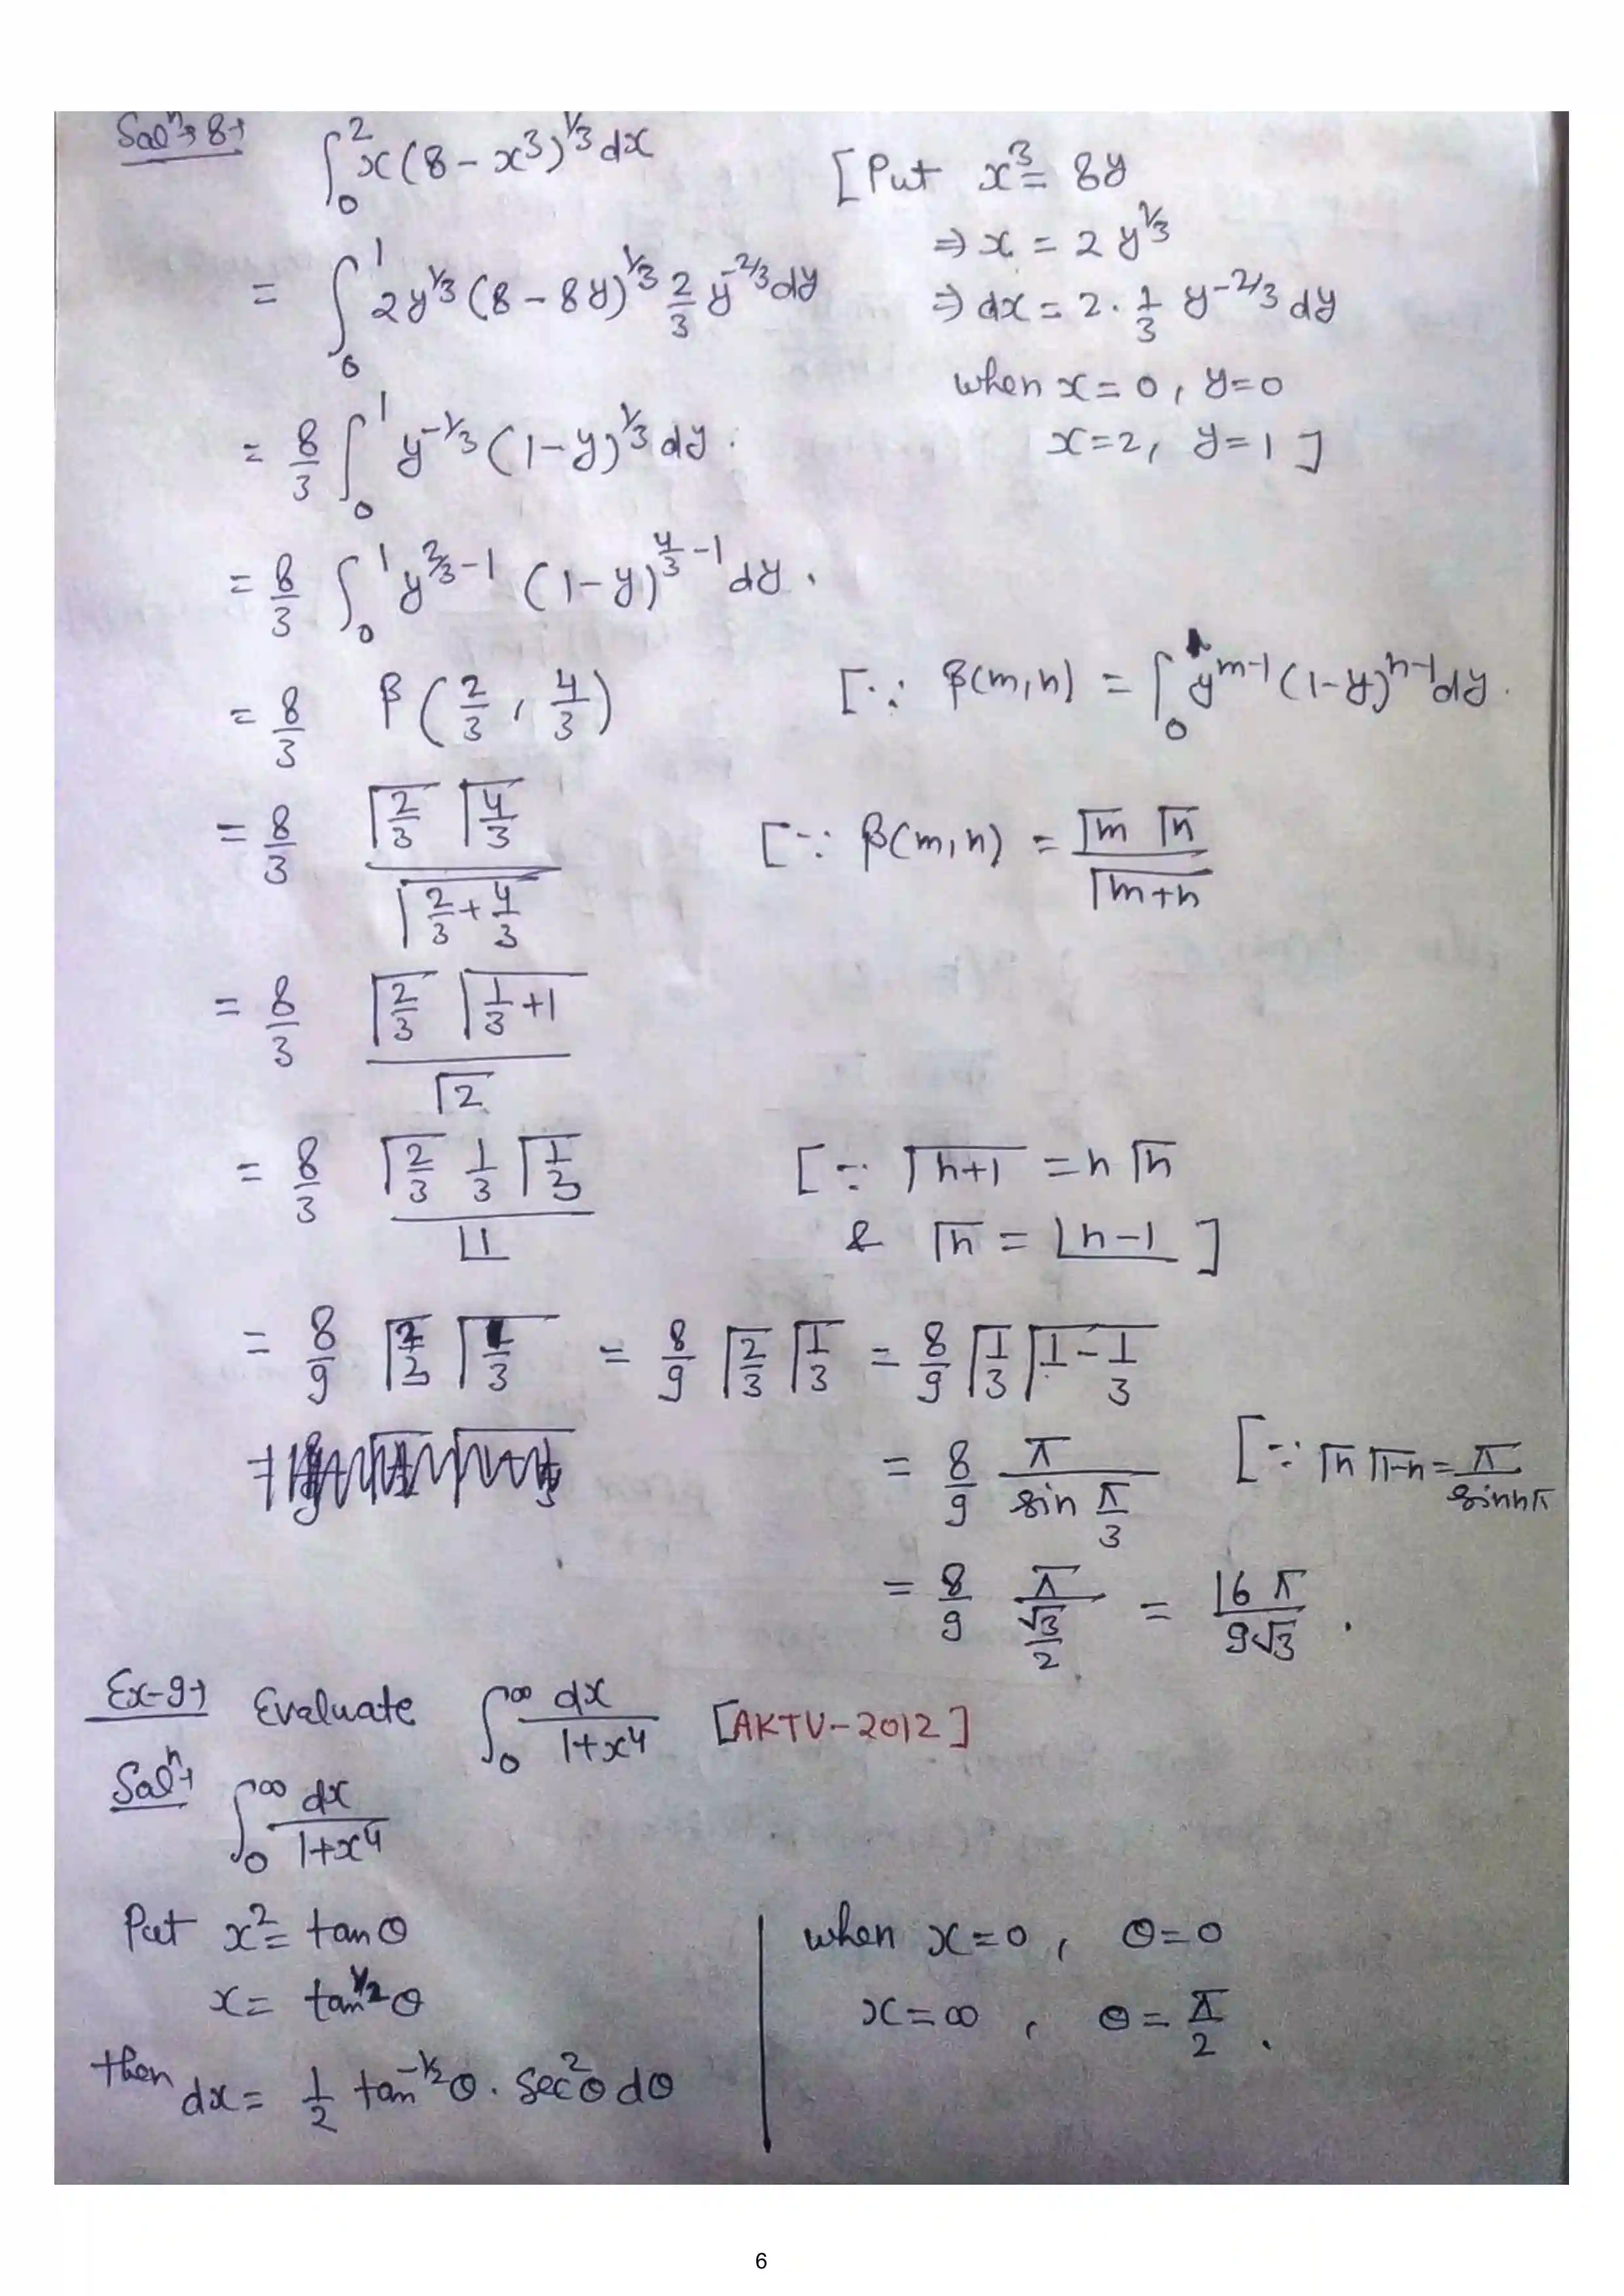 Solⁿ→ 8→ ∫₀² x(8-x³)^{1/3} dx [Put x³ = 8y
⇒ x = 2 y^{1/3}
= ∫₀¹ 2y^{1/3} (8-8y)^{1/3} 2/3 y^{-2/3} dy ⇒ dx = 2 · 1/3 y^{-2/3} dy
when x=0, y=0
= 8/3 ∫₀¹ y^{-1/3} (1-y)^{1/3} dy. x=2, y=1 ]
= 8/3 ∫₀¹ y^{2/3-1} (1-y)^{4/3-1} dy.
= 8/3 β(2/3, 4/3) [∵ β(m,n) = ∫₀¹ y^{m-1} (1-y)^{n-1} dy.
= 8/3 (Γ2/3 Γ4/3)/(Γ2/3+4/3) [∵ β(m,n) = (Γm Γn)/(Γm+n)
= 8/3 (Γ2/3 Γ1/3+1)/(Γ2)
= 8/3 (Γ2/3 1/3 Γ1/3)/(∟1) [∵ Γn+1 = n Γn
& Γn = ∟n-1 ]
= 8/9 Γ2/3 Γ1/3 = 8/9 Γ2/3 Γ1/3 = 8/9 Γ1/3 Γ1-1/3
= 8/9 π/(sin π/3) [∵ Γn Γ1-n = π/(sin nπ)
= 8/9 π/(√3/2) = 16π/(9√3).
Ex-9→ Evaluate ∫₀^∞ dx/(1+x⁴) [AKTU-2012]
Solⁿ→ ∫₀^∞ dx/(1+x⁴)
Put x² = tanθ when x=0, θ=0
x = tan^{1/2}θ x=∞, θ=π/2.
then dx = 1/2 tan^{-1/2}θ · sec²θ dθ
6